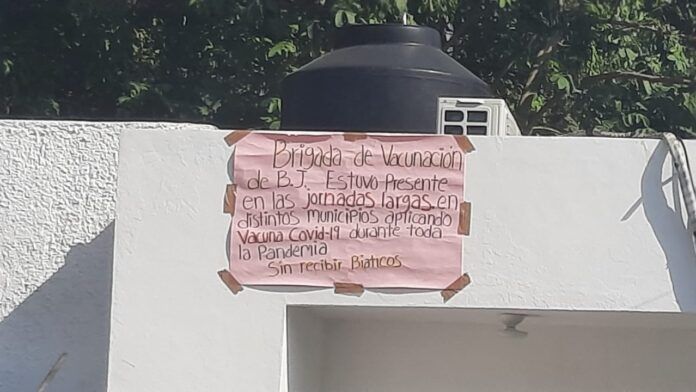 Brigada de Vacunación
de B.J. Estuvo Presente
en las jornadas largas en
distintos municipios aplicando
Vacuna Covid-19 durante toda
la Pandemia
Sin recibir Biaticos